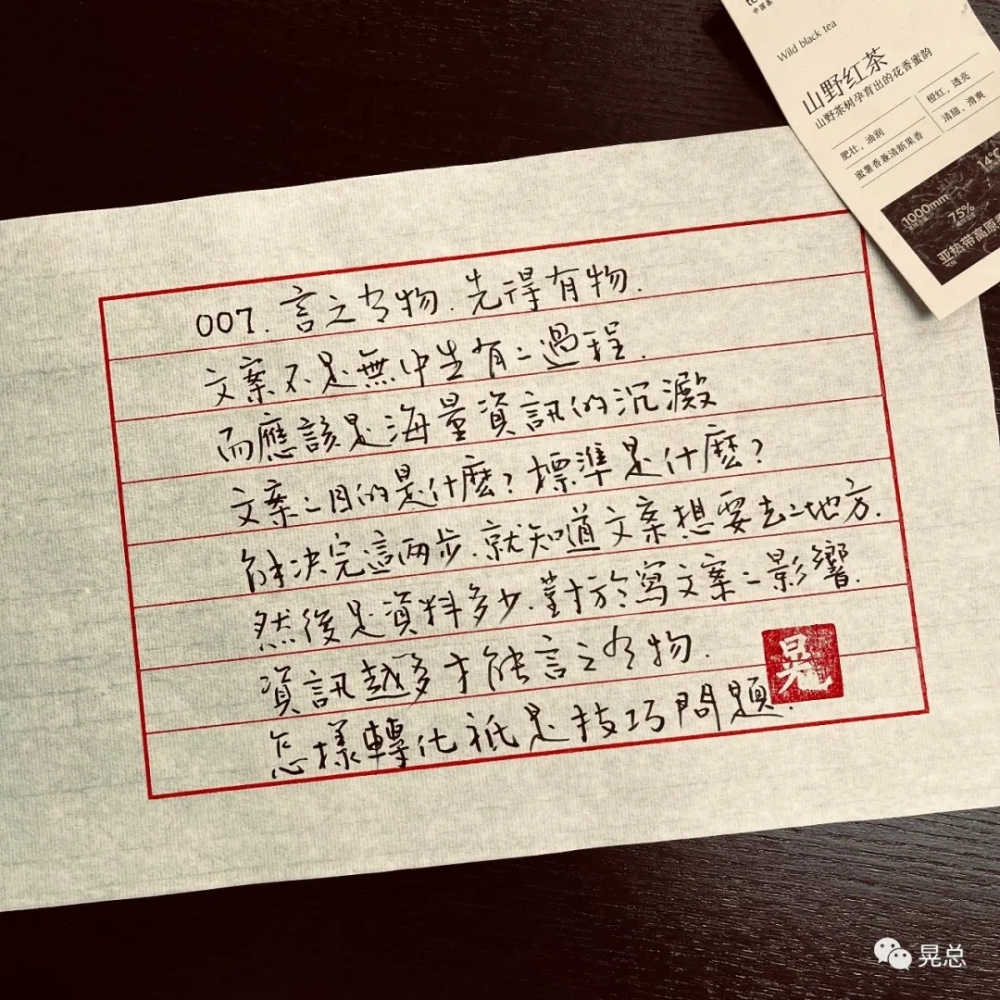 中国茶
Wild black tea
山野红茶
山野茶树孕育出的花香蜜韵
肥壮，油润
橙红，透亮
蜜薯香兼清新果香
清甜、滑爽
1000mm
14℃
75%
亚热带高原
007.言之有物.先得有物.
文案不是無中生有之過程.
而應該是海量資訊的沉澱
文案之目的是什麼？標準是什麼？
解决完這两步.就知道文案想要去之地方.
然後是資料多少.對於寫文案之影響.
資訊越多才能言之有物.
怎樣轉化祇是技巧問題.
晃
晃总